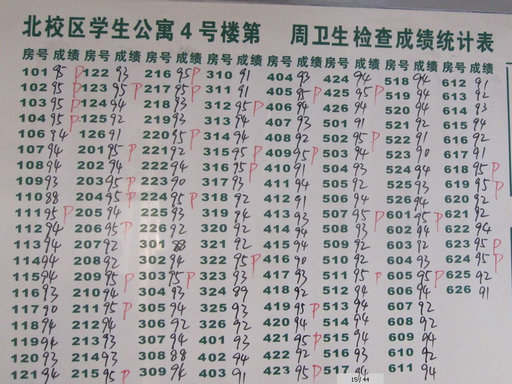 北校区学生公寓4号楼第 周卫生检查成绩统计表
房号 成绩 房号 成绩 房号 成绩 房号 成绩 房号 成绩 房号 成绩 房号 成绩 房号 成绩
101 95 P 122 93 216 95 P 310 91 404 93 424 94 518 94 612 91
102 95 P 123 95 P 217 95 P 311 91 405 95 P 425 95 P 519 94 613 92
103 95 P 124 94 218 93 312 95 P 406 94 426 94 520 94 614 93
104 95 P 125 92 219 93 313 94 407 93 501 91 521 92 615 94
106 94 126 91 220 95 P 314 94 408 92 502 95 P 522 91 616 92
107 94 201 95 P 221 92 315 94 409 95 P 503 94 523 90 617 91
108 94 202 94 222 94 316 95 P 410 91 504 93 524 94 618 95 P
109 93 203 95 P 223 90 317 93 411 94 505 92 525 93 619 95 P
110 88 204 95 P 224 95 P 318 92 412 91 506 94 526 94 620 92
111 95 P 205 94 225 93 319 94 413 93 507 95 P 601 95 P 621 92
112 94 206 95 P 226 92 320 92 414 93 508 93 602 94 622 94
113 94 207 92 301 88 321 92 415 94 509 92 603 92 623 95 P
114 94 208 92 302 94 322 95 P 416 90 510 92 604 93 624 95 P
115 94 209 95 P 303 95 P 323 93 417 93 511 95 P 605 95 P 625 92
116 93 210 94 304 93 324 89 418 92 512 94 606 94 626 91
117 90 211 95 P 305 94 325 93 419 95 P 513 94 607 92
118 94 212 94 306 92 326 92 420 94 514 94 608 92
119 94 213 93 307 94 401 93 421 95 P 515 94 609 94
120 93 214 93 308 88 402 94 422 92 516 92 610 92
121 94 215 95 P 309 94 403 91 423 95 P 517 94 611 94
15 / 44